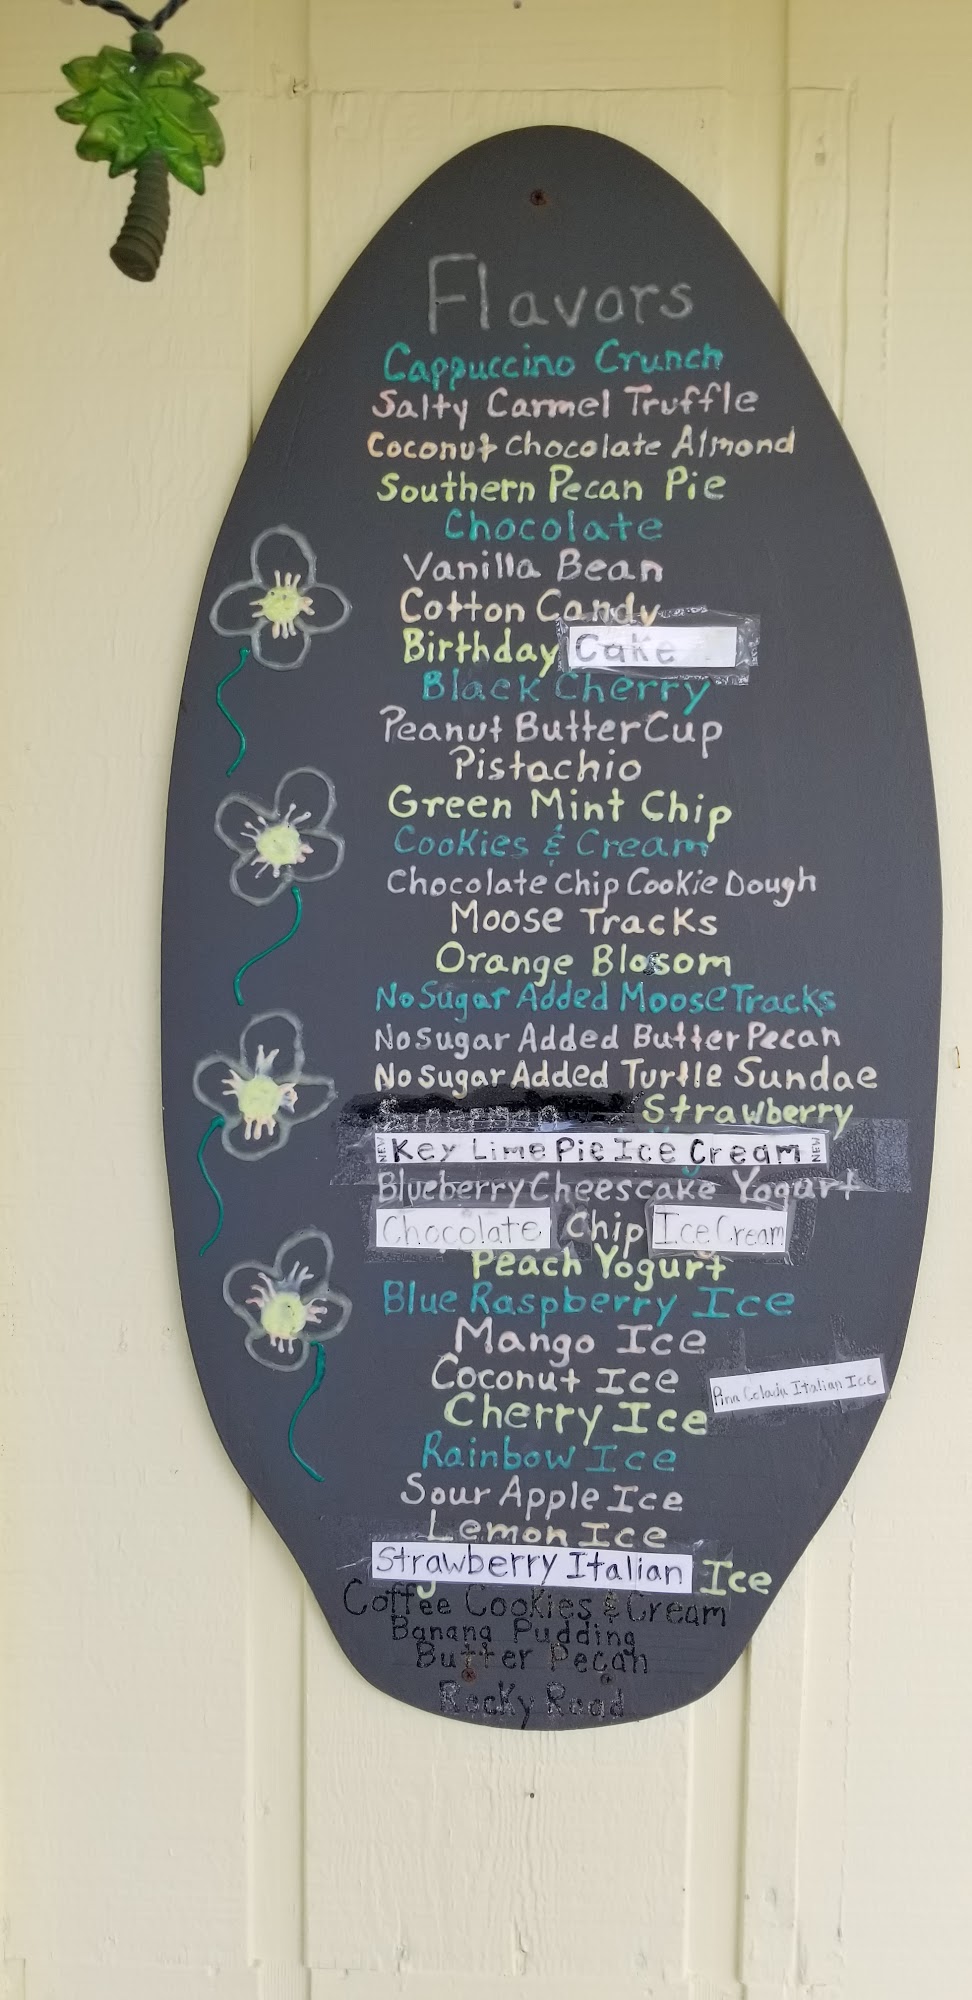 Flavors
Cappuccino Crunch
Salty Carmel Truffle
Coconut Chocolate Almond
Southern Pecan Pie
Chocolate
Vanilla Bean
Cotton Candy
Birthday Cake
Black Cherry
Peanut Butter Cup
Pistachio
Green Mint Chip
Cookies & Cream
Chocolate Chip Cookie Dough
Moose Tracks
Orange Blosom
No Sugar Added Moose Tracks
No Sugar Added Butter Pecan
No Sugar Added Turtle Sundae
Strawberry
NEW Key Lime Pie Ice Cream NEW
Blueberry Cheescake Yogurt
Chocolate Chip Ice Cream
Peach Yogurt
Blue Raspberry Ice
Mango Ice
Coconut Ice
Pina Colada Italian Ice
Cherry Ice
Rainbow Ice
Sour Apple Ice
Lemon Ice
Strawberry Italian Ice
Coffee Cookies & Cream
Banana Pudding
Butter Pecan
Rocky Road